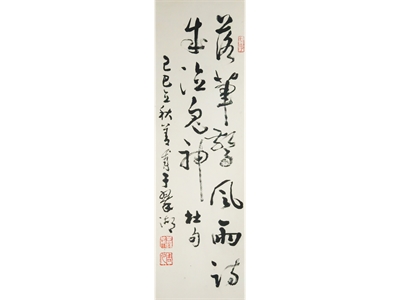 落筆驚風雨詩
成泣鬼神 杜句
己巳立秋于翠湖